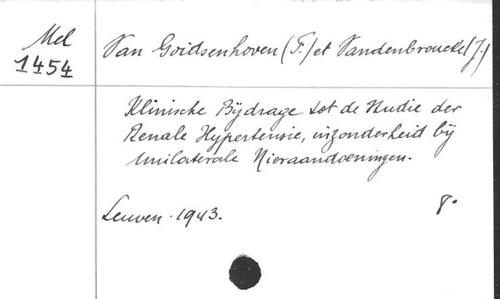 Mel
1454
Van Goidsenhoven (F.) et Vandenbroucke (J.)
Klinische Bijdrage tot de Studie der
Renale Hypertensie, inzonderheid bij
Unilaterale Nieraandoeningen.
Leuven - 1943. 8°